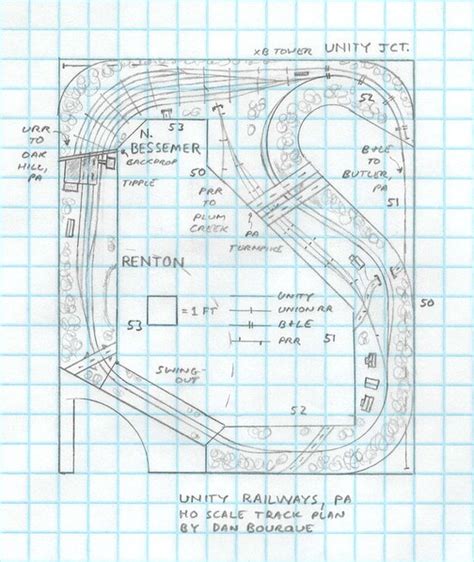 XB TOWER UNITY JCT.
52
URR
TO
OAK
HILL,
PA
N.
BESSEMER
BACKDROP
TIPPLE
53
50
PRR
TO
PLUM
CREEK
PA
TURNPIKE
B+LE
TO
BUTLER,
PA
51
50
RENTON
53
= 1 FT
UNITY
UNION RR
B+LE
PRR
51
SWING-
OUT
52
UNITY RAILWAYS, PA
HO SCALE TRACK PLAN
BY DAN BOURQUE